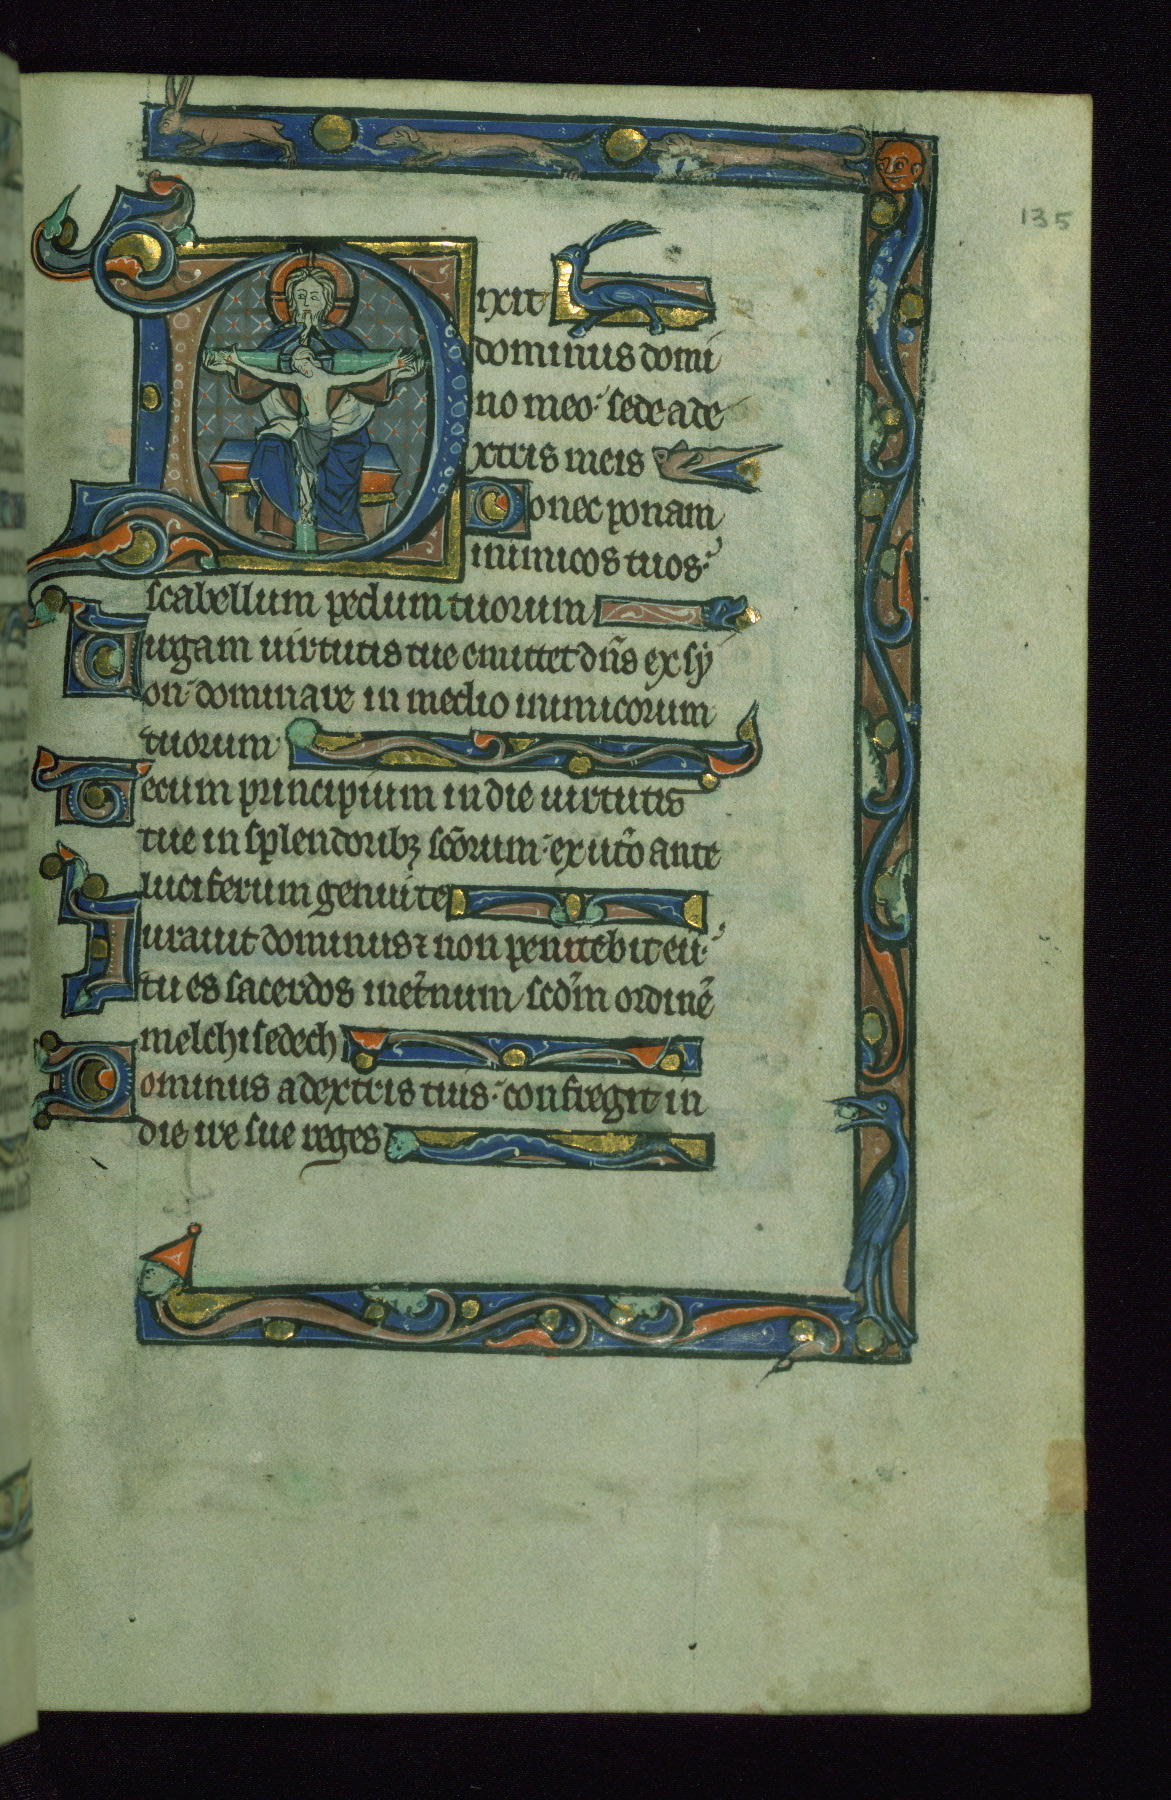 135
Dixit
dominus domi
no meo: sede a de
xtris meis
Donec ponam
inimicos tuos:
scabellum pedum tuorum
Uirgam uirtutis tue emittet dñs ex sẏ
on: dominare in medio inimicorum
tuorum
Tecum principium in die uirtutis
tue in splendoribꝫ scõrum: ex utõ ante
luciferum genui te
Iurauit dominus ⁊ non penitebit eũ:
tu es sacerdos inet̃num scđm ordinẽ
melchisedech
Dominus a dextris tuis: confregit in
die ire sue reges